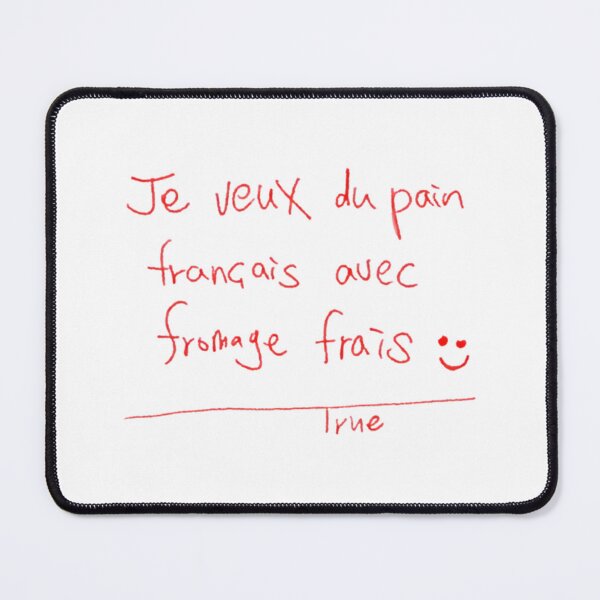 Je veux du pain
français avec
fromage frais
True